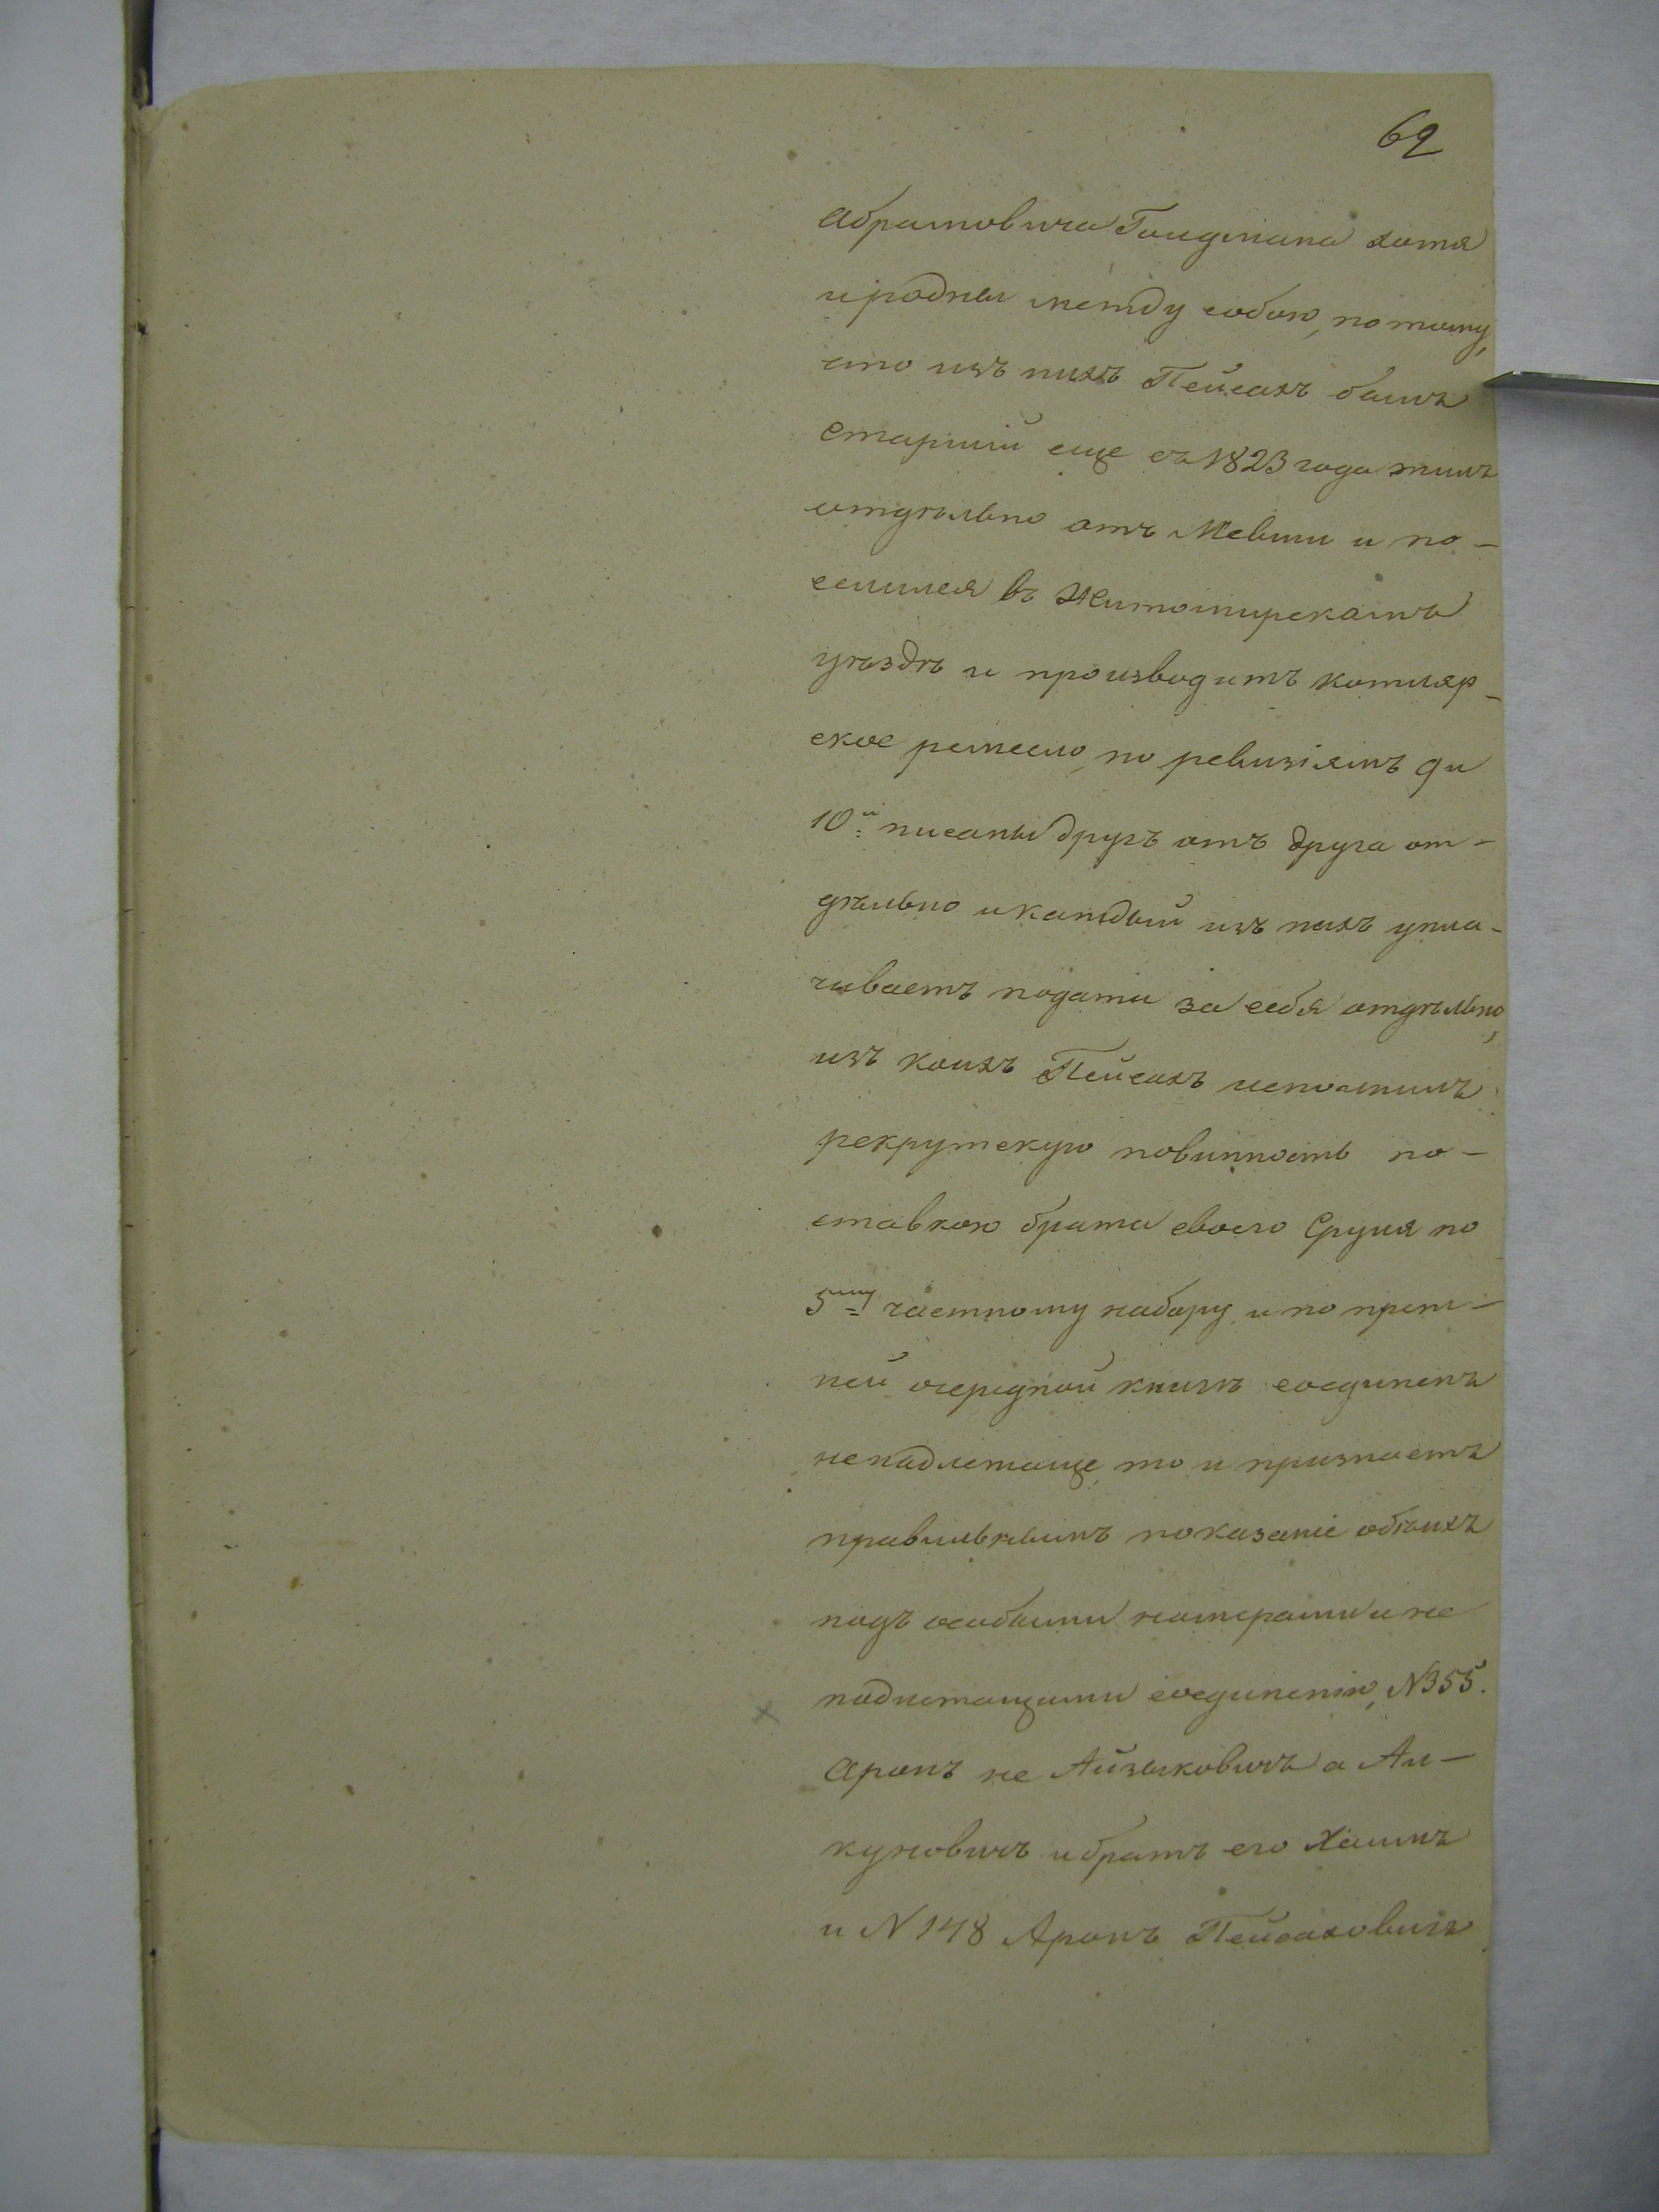 62
Абрамовича Гольдмана хотя
и родны между собою, потому,
что изъ нихъ Пейсахъ бывъ
старшій еще съ 1823 года жилъ
отдѣльно отъ Мевши и по-
селился въ Житомирскомъ
уѣздѣ и производитъ котляр-
ское ремесло, по ревизіямъ 9 и
10й писаны другъ отъ друга от-
дѣльно и каждый изъ нихъ упла-
чиваетъ подати за себя отдѣльно,
изъ коихъ Пейсахъ исполнилъ
рекрутскую повинность по-
ставкою брата своего Сруля по
5му частному набору и по преж-
ней очередной книгѣ соединенъ
ненадлежаще, то и признаетъ
правильнымъ показаніе обѣихъ
подъ особыми номерами и не
подлежащими соединенію, N 355.
Аронъ не Айзыковичъ а Ян-
куновичъ и братъ его Хаимъ
и N 148 Аронъ Пейсаховичъ